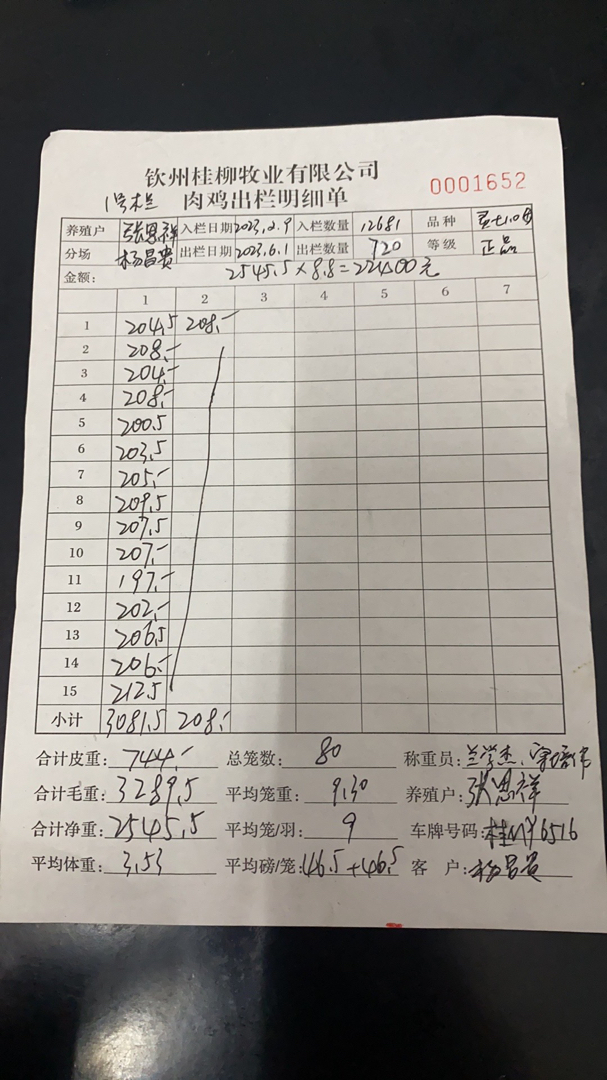 钦州桂柳牧业有限公司
1号栏 肉鸡出栏明细单 0001652
养殖户 张恩祥 入栏日期 2023.2.9 入栏数量 12681 品种
分场 杨昌贵 出栏日期 2023.6.1 出栏数量 720 等级 正品
金额: 2545.5×8.8=22400元
1 2 3 4 5 6 7
1 204.5 208.-
2 208.-
3 204.-
4 208.-
5 200.5
6 203.5
7 205.-
8 209.5
9 207.5
10 207.-
11 197.-
12 202.-
13 206.5
14 206.-
15 212.5
小计 3081.5 208.-
合计皮重: 744.- 总笼数: 80 称重员: 兰学杰、
合计毛重: 3289.5 平均笼重: 9.30 养殖户: 张恩祥
合计净重: 2545.5 平均笼/羽: 9 车牌号码: 桂MY6516
平均体重: 3.53 平均磅/笼: 46.5+46.5 客户: 杨昌贵